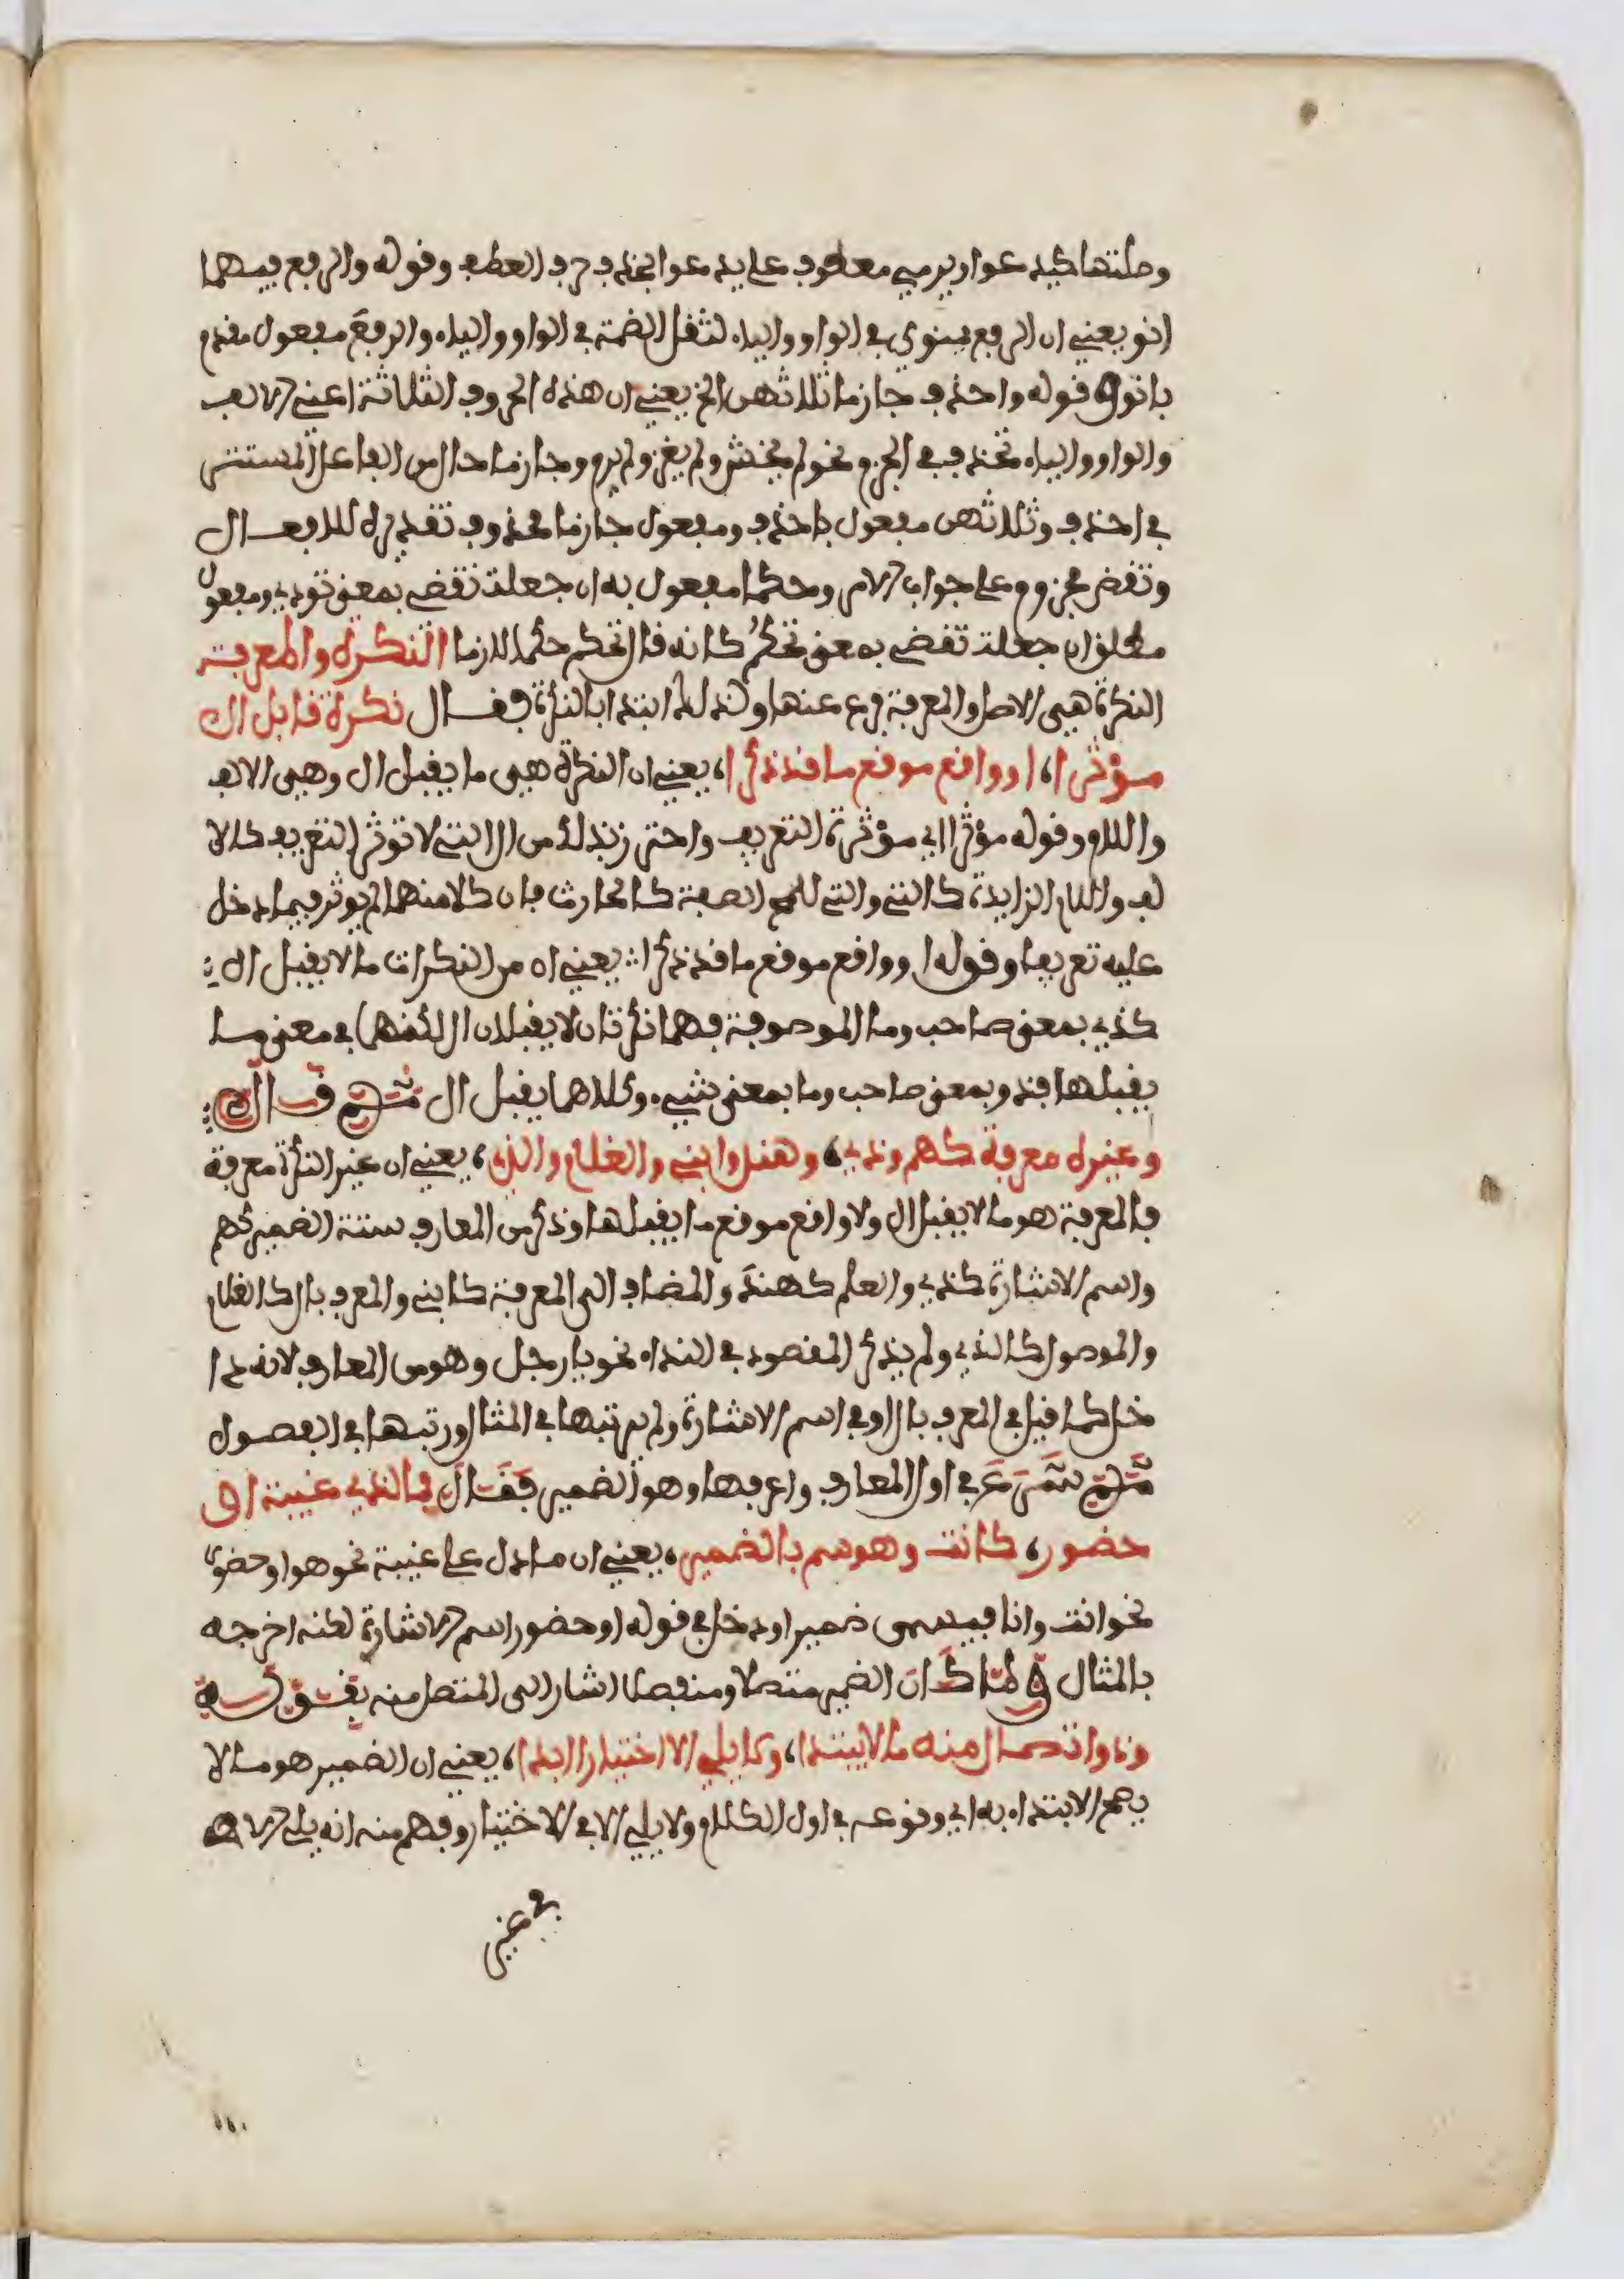 وصلتها كيدعو او يرمي معطوف على يدعو ابحذف حرف العطف وقوله والرفع فيهما
انو يعني ان الرفع ينوى في الواو والياء لثقل الضمة في الواو والياء والرفع مفعول مقدم
بانو قوله واحذف جازما ثلاثهن الخ يعني ان هذه الحروف الثلاثة اعني الالف
والواو والياء تحذف في الجزم نحو لم يخش ولم يغز ولم يرم وجازما حال من الفاعل المستتر
في احذف وثلاثهن مفعول باحذف ومفعول جازما محذوف تقديره للافعال
وتقض مجزوم على جواب الامر وحكما مفعول به ان جعلت تقضي بمعنى تودي ومفعول
مطلق ان جعلت تقضي بمعنى تحكم كانه قال تحكم حكما لازما النكرة والمعرفة
النكرة هي الاصل والمعرفة فرع عنها ولذلك ابتدا بالنكرة فقال نكرة قابل ال
مؤثرا، او واقع موقع ما قد ذكرا، يعني ان النكرة هي ما يقبل ال وهي الالف
واللام وقوله مؤثرا اي مؤثرة التعريف واحترز بذلك من ال التي لا توثر التعريف كالا
لف واللام الزايدة كالتي والتي للمح الصفة كالحارث فان كلا منهما لم يوثر فيما دخل
عليه تعريفا وقوله او واقع موقع ما قد ذكرا يعني ان من النكرات ما لا يقبل ال
كذي بمعنى صاحب وما الموصوفة فهما نكرتان لا يقبلان ال لكنهما في معنى ما
يقبلها فذو بمعنى صاحب وما بمعنى شيء وكلاهما يقبل ال ثم قال
وغيره معرفة كهم وذي، وهند وابني والغلام والذي، يعني ان غير النكرة معرفة
فالمعرفة هو ما لا يقبل ال ولا واقع موقع ما يقبلها وذكر من المعارف ستة الضمير كهم
واسم الاشارة كذي والعلم كهند والمضاف الى المعرفة كابني والمعرف بال كالغلام
والموصول كالذي ولم يذكر المقصود في النداء نحو يا رجل وهو من المعارف لانه دا
خل كما قيل في المعرف بال او في اسم الاشارة ولم يرتبها في المثال ورتبها في الفصول
ثم شرع في اول المعارف واعرفها وهو الضمير فقال فما لذي غيبة او
حضور، كانت وهو سم بالضمير، يعني ان ما دل على غيبة نحو هو او حضور
نحو انت وانا فيسمى ضميرا ودخل في قوله او حضور اسم الاشارة لكنه اخرجه
بالمثال ولما كان الضمير متصلا ومنفصلا اشار الى المتصل منه بقوله
وذو اتصال منه ما لا يبتدا، ولا يلي الا اختيارا ابدا، يعني ان الضمير هو ما لا
يصح الابتداء به اي وقوعه في اول الكلام ولا يلي الا في الاختيار وفهم منه انه يلي الا
في غير